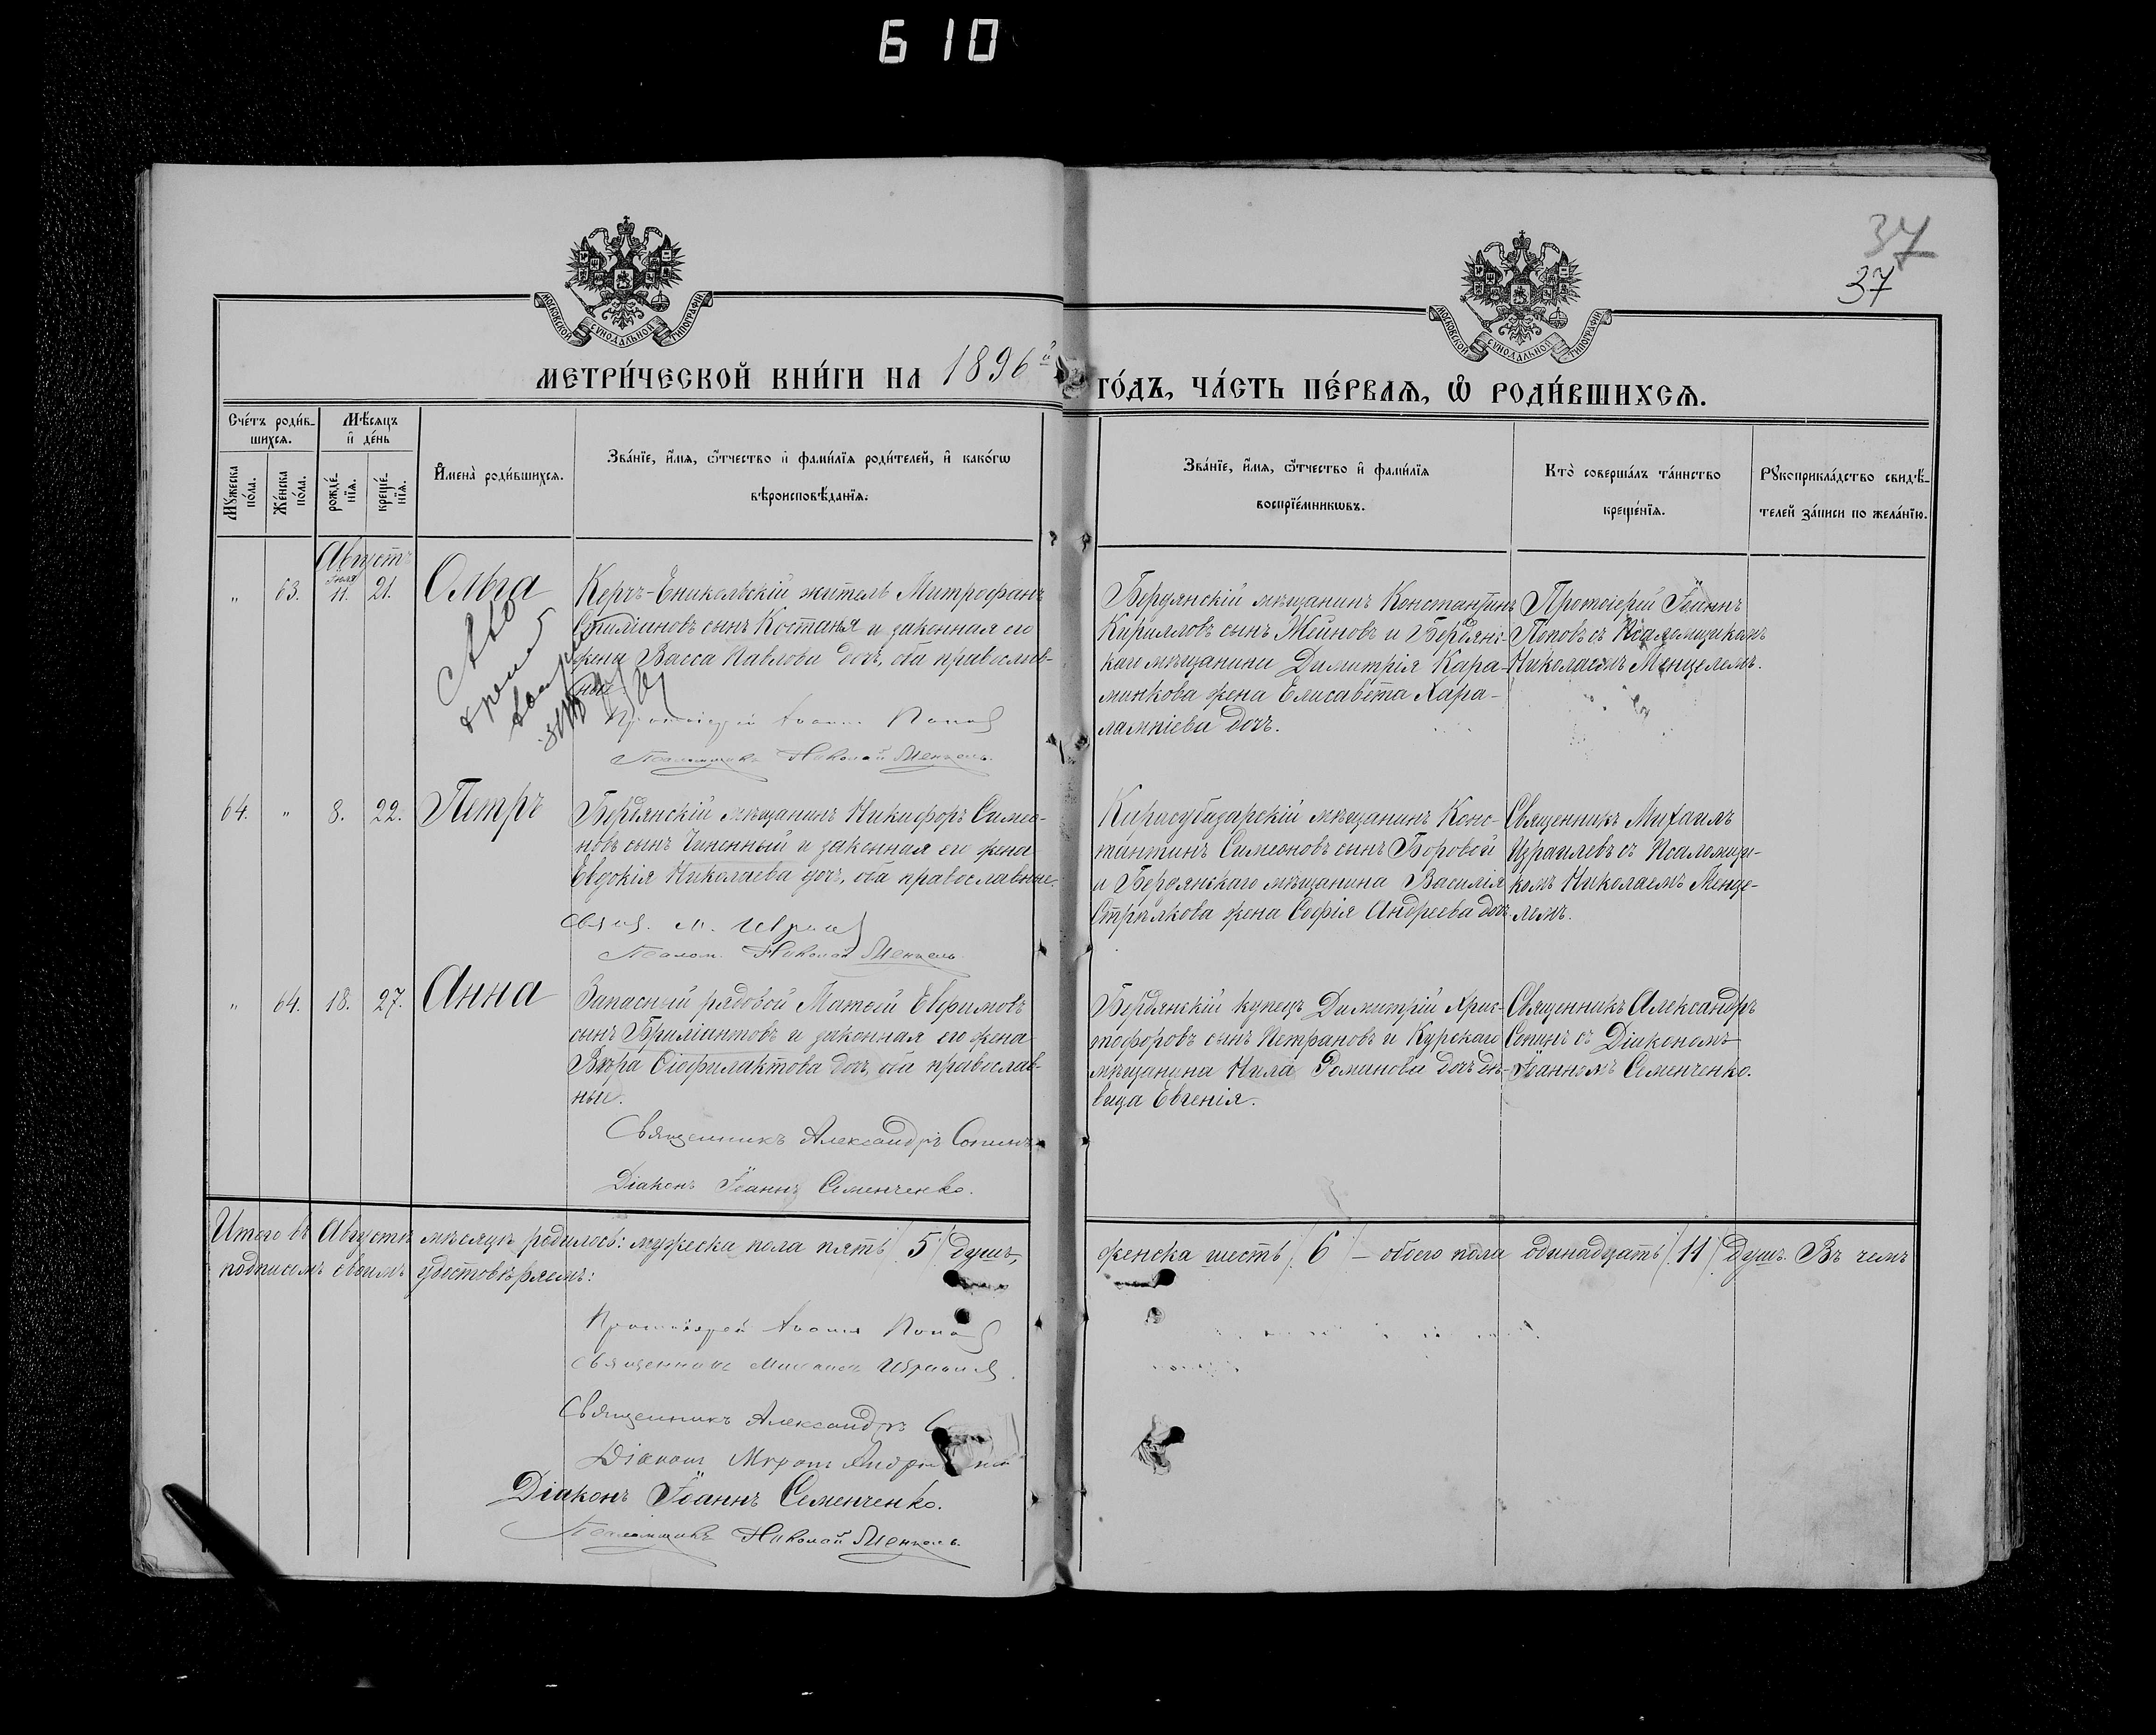 610
37
37
МОСКОВСКОЙ СѴНОДАЛЬНОЙ ТИПОГРАФІИ
МОСКОВСКОЙ СѴНОДАЛЬНОЙ ТИПОГРАФІИ
МЕТРИ́ЧЕСКОЙ КНИ́ГИ НА 1896й ГО́ДЪ, ЧА́СТЬ ПЕ́РВАѦ, Ѽ РОДИ́ВШИХСѦ.
Сче́тъ роди́в-
шихсѧ.
Мѣ́сѧцъ
и҆ де́нь
Мꙋ́жеска
по́ла.
Же́нска
по́ла.
рожде́-
нїѧ.
креще́-
нїѧ.
И҆мена̀ роди́вшихсѧ.
Зва́нїе, и҆́мѧ, ѻ҆́тчество и҆ фами́лїѧ роди́телей, и҆ како́гѡ
вѣроисповѣ́данїѧ.
Зва́нїе, и҆́мѧ, ѻ҆́тчество и҆ фами́лїѧ
воспрїе́мникѡвъ.
Кто̀ соверша́лъ та́инство
креще́нїѧ.
Рꙋкоприкла́дство свидѣ́-
телей за́писи по жела́нїю.
Августъ
" 63. Іюля 11. 21. Ольга
Керчь-Еникольскій житель Митрофанъ
сынъ Костанья и законная его
жена Васса Павлова дочь, оба православ-
ные
Протоіерей Іоаннъ Поповъ
Псаломщикъ Николай Менцель.
Бердянскій мѣщанинъ Константинъ
Кирилловъ сынъ Жейновъ и Бердянс-
каго мѣщанина Димитрія Кара-
минкова жена Елисавета Хара-
лампіева дочь.
Протоіерей Іоаннъ
Поповъ съ Псаломщикомъ
Николаемъ Менцелемъ.
64. " 8. 22. Петръ
Бердянскій мѣщанинъ Никифоръ Симео-
новъ сынъ Чиненный и законная его жена
Евдокія Николаева дочь, оба православные.
Свящ. М. Израил
Псалом. Николай Менцель.
Карасубазарскій мѣщанинъ Конс-
тантинъ Симеоновъ сынъ Боровой
и Бердянскаго мѣщанина Василія
Стрѣлкова жена Софія Андреева дочь.
Священникъ Михаилъ
Израилевъ съ Псаломщи-
комъ Николаемъ Менце-
лемъ.
" 64. 18. 27. Анна
Запасный рядовой Матѳей Евфимовъ
сынъ Бриліантовъ и законная его жена
Вѣра Ѳіофилактова дочь, оба православ-
ные.
Священникъ Александръ Сопинъ
Діаконъ Іоаннъ Семенченко.
Бердянскій купецъ Димитрій Хрис-
тофоровъ сынъ Петрановъ и Курскаго
мѣщанина Нила дочь дѣ-
вица Евгенія.
Священникъ Александръ
Сопинъ съ Діакономъ
Іоанномъ Семенченко.
Итого въ Августѣ мѣсяцѣ родилось: мужеска пола пять /5/ душъ, женска шесть /6/ – обоего пола одинадцать /11/ душъ. Въ чемъ
подписомъ своимъ удостовѣряемъ:
Протоіерей Іоаннъ Поповъ
Священникъ Михаилъ Израилев
Священникъ Александръ
Діаконъ
Діаконъ Іоаннъ Семенченко.
Псаломщикъ Николай Менцель.